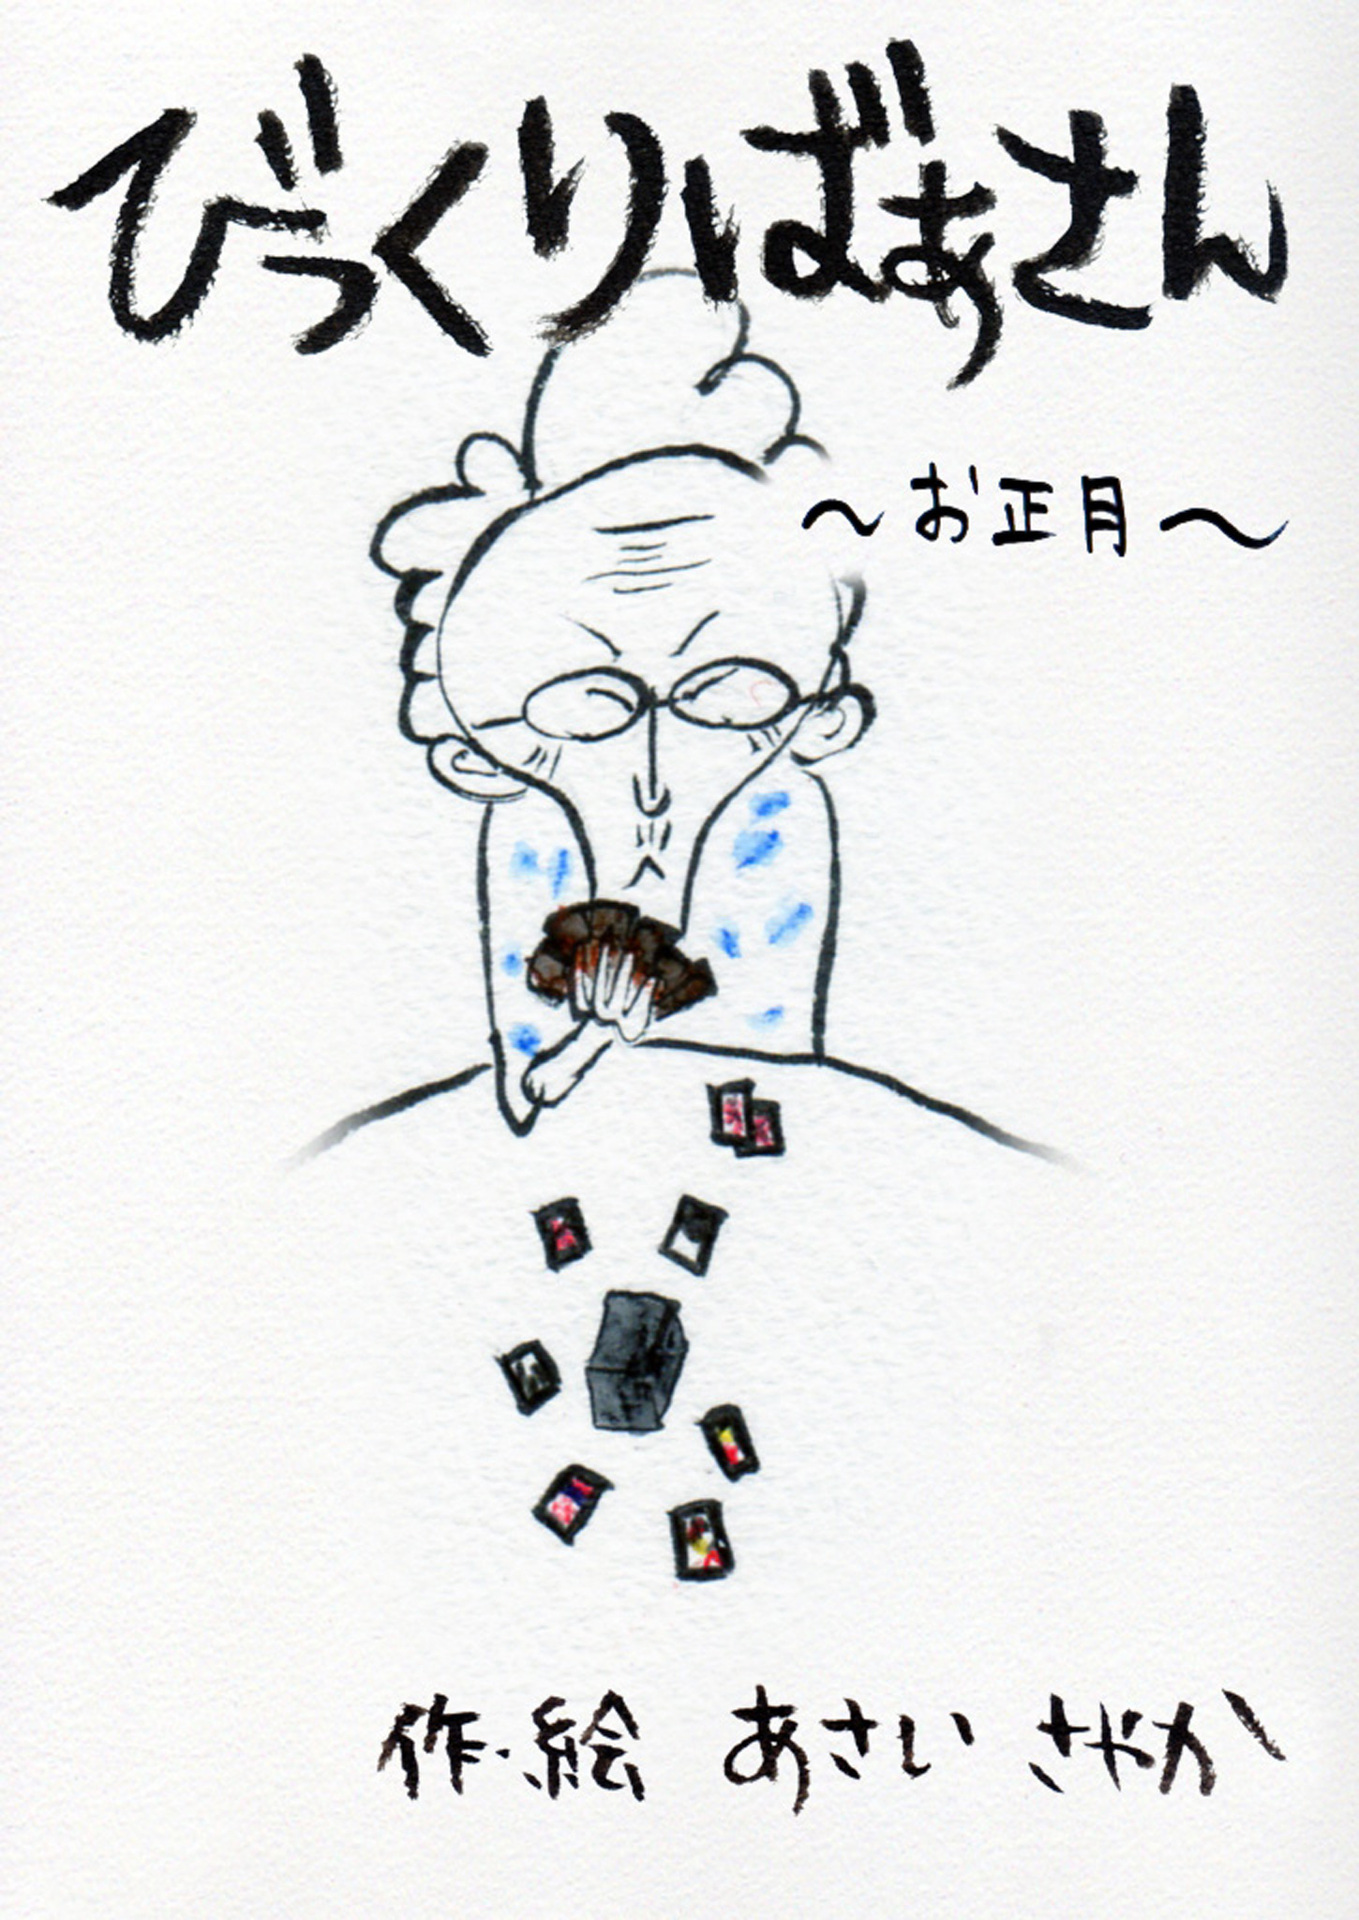 びっくりばぁさん
～お正月～
作・絵 あさい さやか